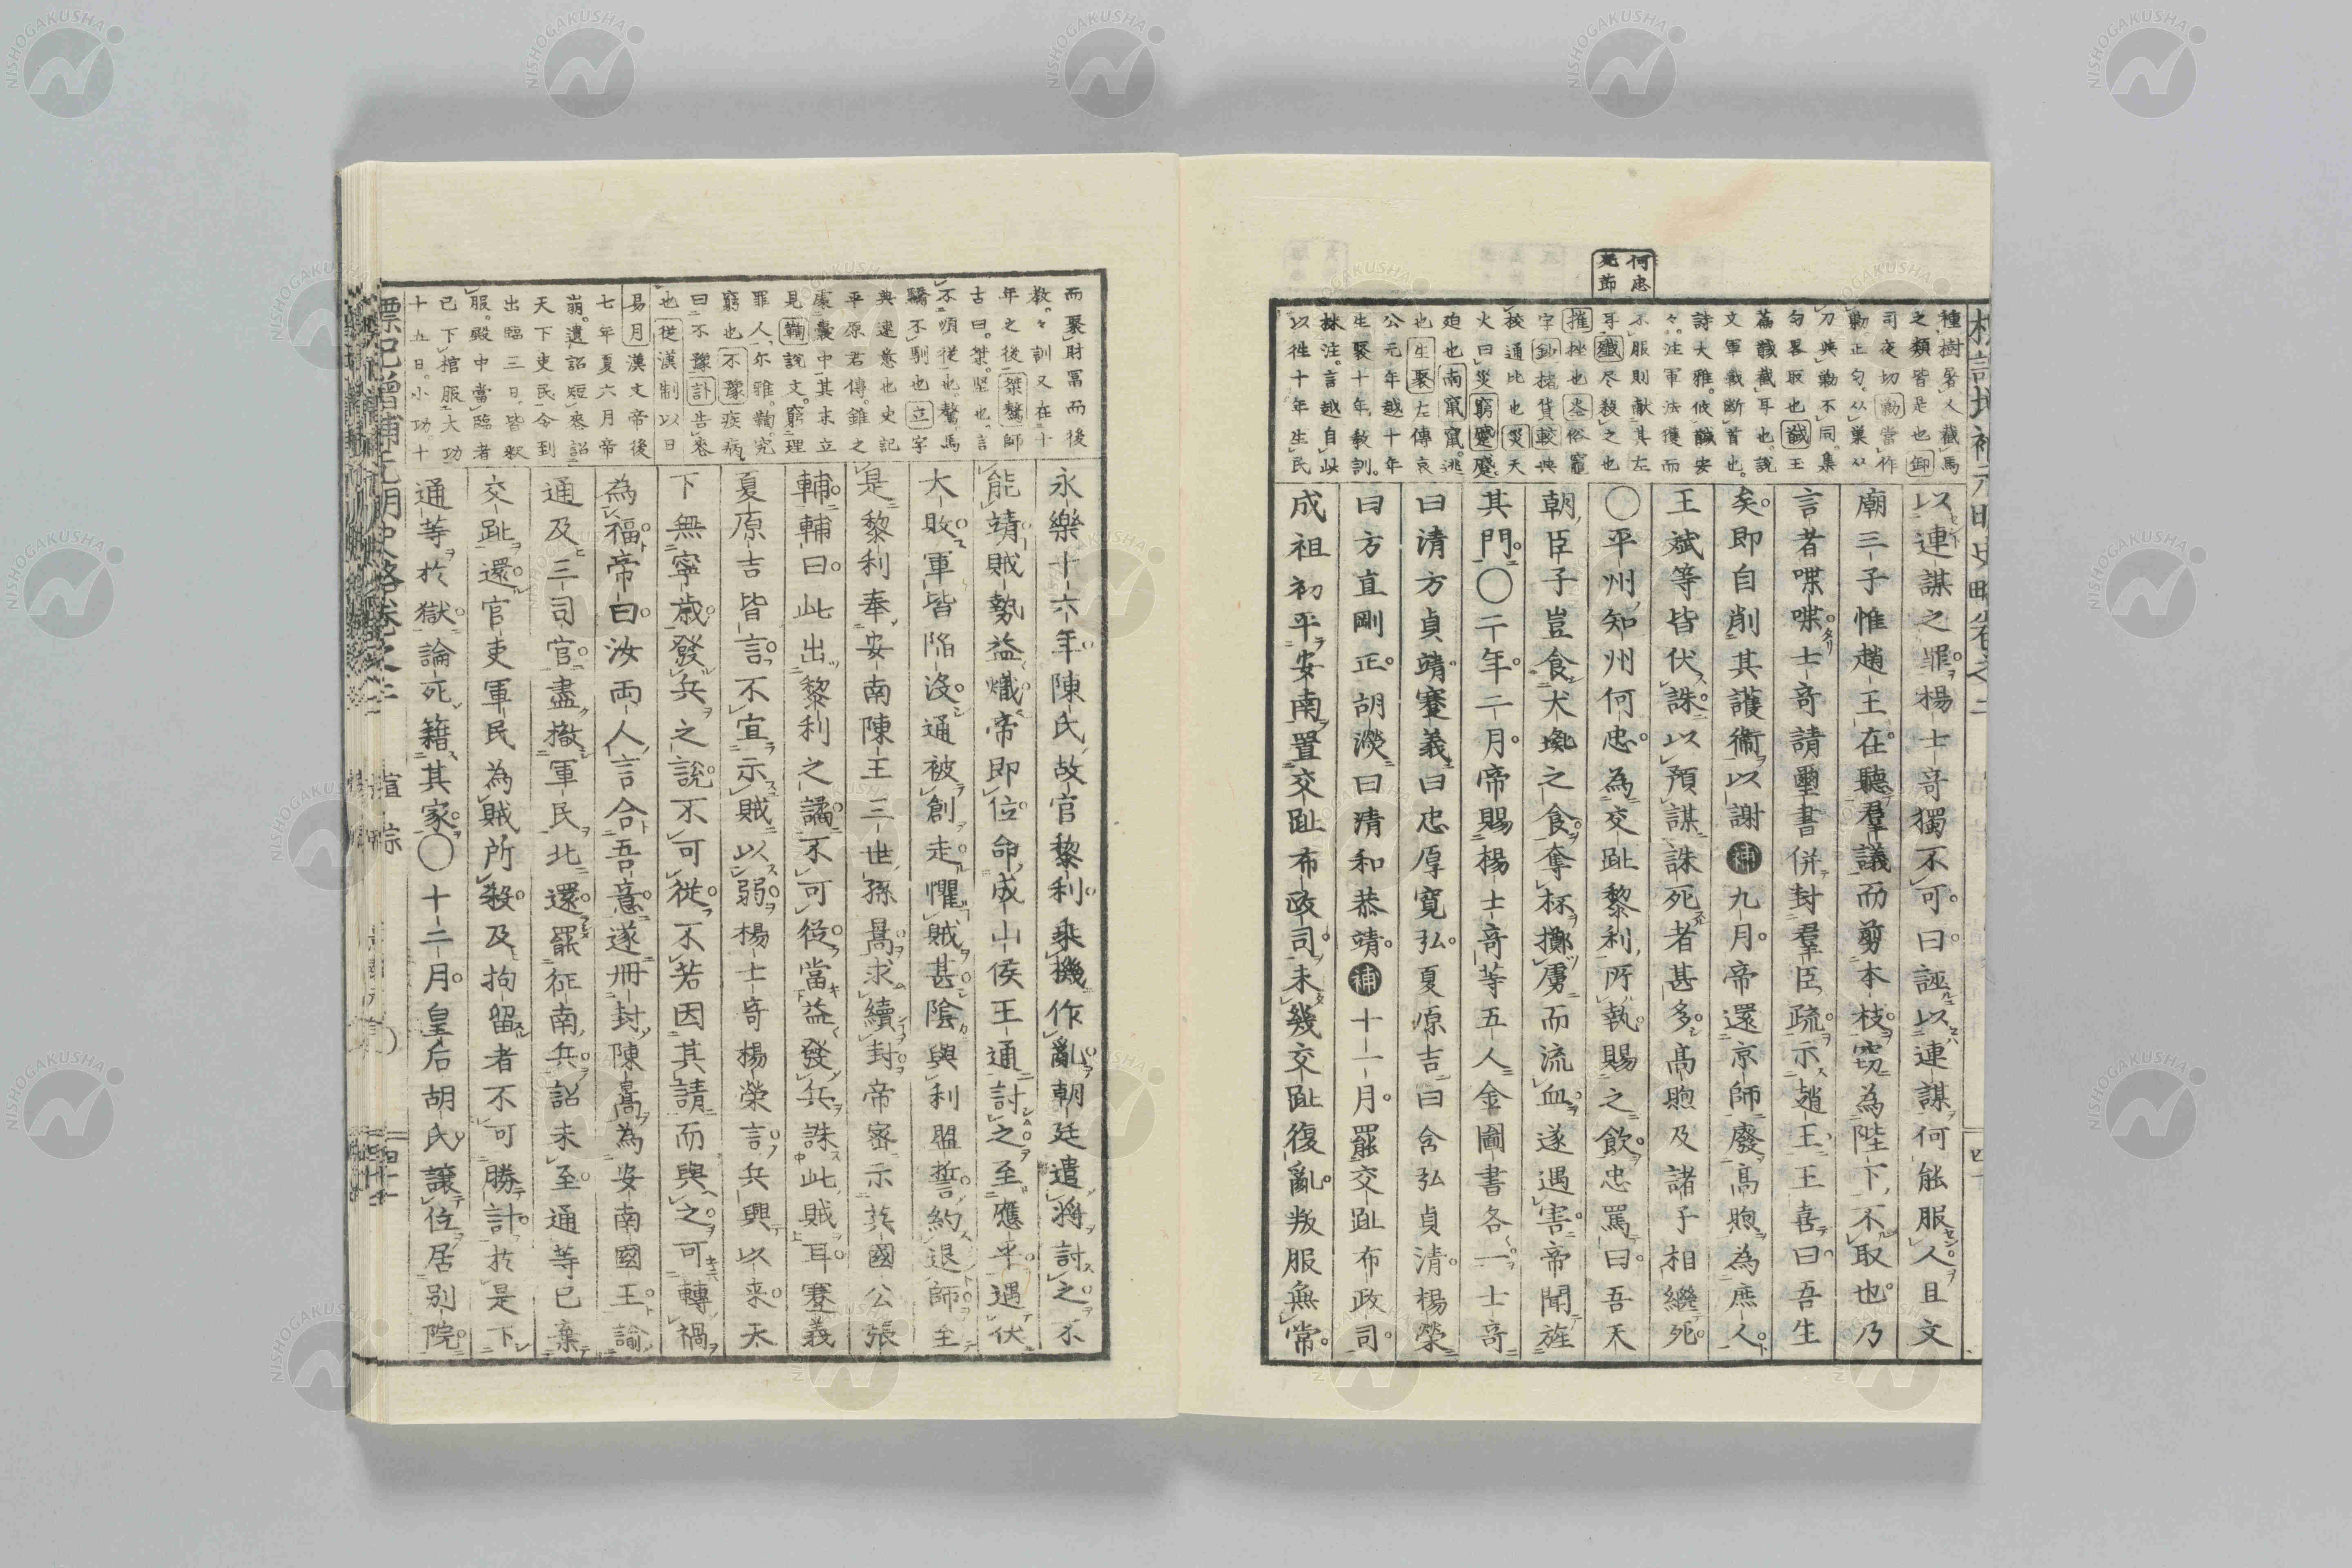 何忠
死節
種樹屠人截馬
之類皆是也卸
司夜切勦當作
勦正勾从巢从
刀與勦不同集
勾畧取也馘王
篇馘截耳也說
文軍戰斷首也
詩大雅攸馘安
々注軍法獲而
不服則献其左
耳殲尽殺之也
推挫也岺俗竈
字鈔掠貨較換
挍通比也災天
火曰災窮蹙蹙
迫也南竄竄逃
也生聚左傳哀
公元年越十年
生聚十年教訓
抹注言越自此
以徃十年生民
以連謀之罪楊士竒獨不可曰誣以連謀何能服人且文
廟三子惟趙王在聽羣議而剪本枝竊為陛下不取也乃
言者喋喋士竒請璽書併封羣臣疏示趙王王喜曰吾生
矣即自削其護衞以謝補九月帝還京師廢高煦為庶人
王斌等皆伏誅以預謀誅死者甚多高煦及諸子相繼死
〇平州知州何忠為交趾黎利所執賜之飲忠罵曰吾天
朝臣子豈食犬彘之食奪杯擲虜而流血遂遇害帝聞旌
其門〇二年二月帝賜楊士竒等五人金圖書各一士竒
曰清方貞靖蹇義曰忠厚寬弘夏原吉曰含弘貞清楊榮
曰方直剛正胡濙曰清和恭靖補十一月罷交趾布政司
成祖初平安南置交趾布政司未幾交趾復亂叛服無常
而聚財冨而後
教々訓又在十
年之後桀驁師
古曰桀坚也言
不順従也驁馬
驕不馴也立字
典速意也史記
平原君傳錐之
處囊中其末立
見鞫說文窮理
罪人尓雅鞫究
窮也不豫疾病
曰不豫訃告喪
也從漢制以日
易月漢文帝後
七年夏六月帝
崩遺詔短喪詔
天下吏民令到
出臨三日皆釈
服殿中當臨者
已下棺服大功
十五日小功十
永樂十六年陳氏故官黎利乘機作亂朝廷遣将討之不
能靖賊勢益熾帝即位命成山侯王通討之至應平遇伏
大敗軍皆陷没通被創走懼賊甚陰與利盟誓約退師至
是黎利奉安南陳王三世孫暠求續封帝密示英國公張
輔輔曰此出黎利之譎不可從當益發兵誅此賊耳蹇義
夏原吉皆言不宜示賊以弱楊士竒楊榮言兵興以来天
下無寧歳發兵之說不可從不若因其請而與之可轉禍
為福帝曰汝両人言合吾意遂冊封陳暠為安南國王諭
通及三司官盡撤軍民北還罷征南兵詔未至通等已棄
交趾還官吏軍民為賊所殺及拘留者不可勝計於是下
通等於獄論死籍其家〇十二月皇后胡氏譲位居別院